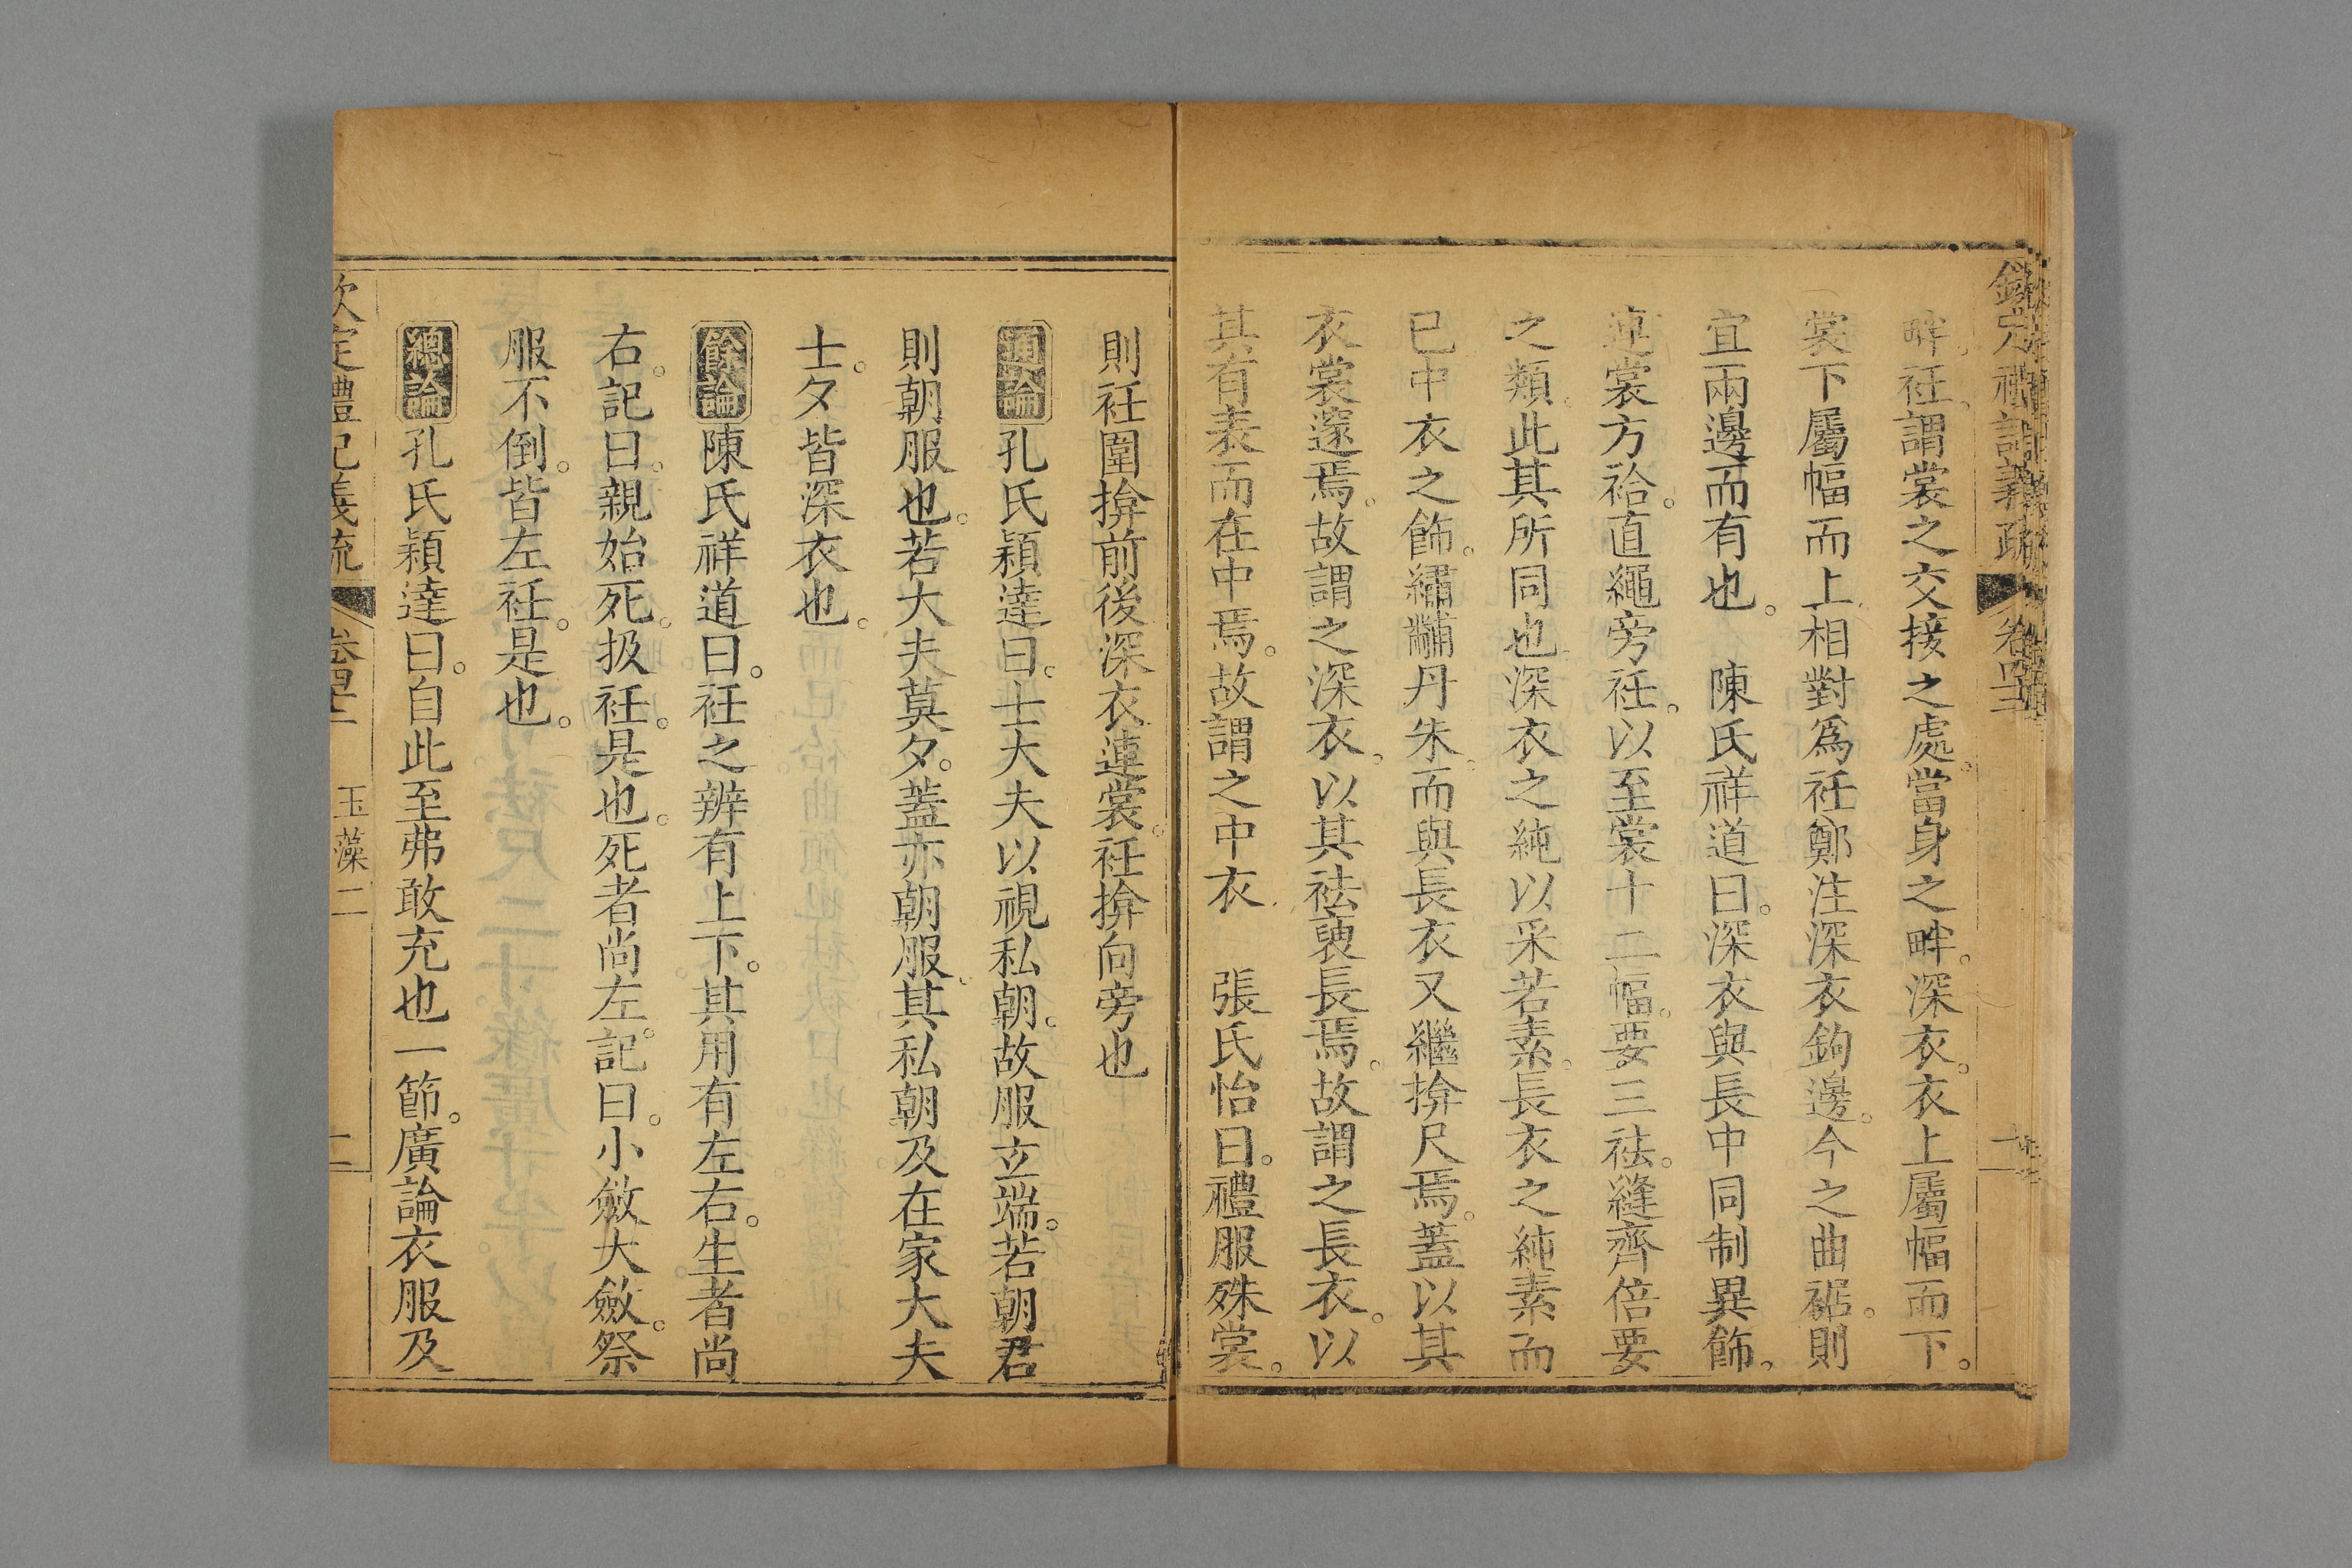 欽定禮記義疏 卷四十二
畔。衽。謂裳之交接之處。當身之畔。深衣。衣上屬幅而下。
裳下屬幅而上。相對爲衽。鄭注深衣鉤邊。今之曲裾。則
宜兩邊而有也。　陳氏祥道曰。深衣與長中同制異飾。
連裳方袷。直繩旁衽。以至裳十二幅。要三袪。縫齊倍要
之類。此其所同也。深衣之純以采若素。長衣之純素而
已。中衣之飾。繡黼丹朱。而與長衣又繼揜尺焉。蓋以其
衣裳邃焉。故謂之深衣。以其袪褎長焉。故謂之長衣。以
其有表而在中焉。故謂之中衣　張氏怡曰。禮服殊裳。
則衽圍揜前後。深衣連裳。衽揜向旁也
通論孔氏穎達曰。士大夫以視私朝。故服玄端。若朝君
則朝服也。若大夫莫夕。蓋亦朝服。其私朝及在家大夫
士。夕皆深衣也。
餘論陳氏祥道曰。衽之辨有上下。其用有左右。生者尚
右。記曰。親始死。扱衽。是也。死者尚左。記曰。小斂大斂。祭
服不倒。皆左衽。是也。
總論孔氏穎達曰。自此至弗敢充也一節。廣論衣服及
欽定禮記義疏 卷四十二 玉藻二 二